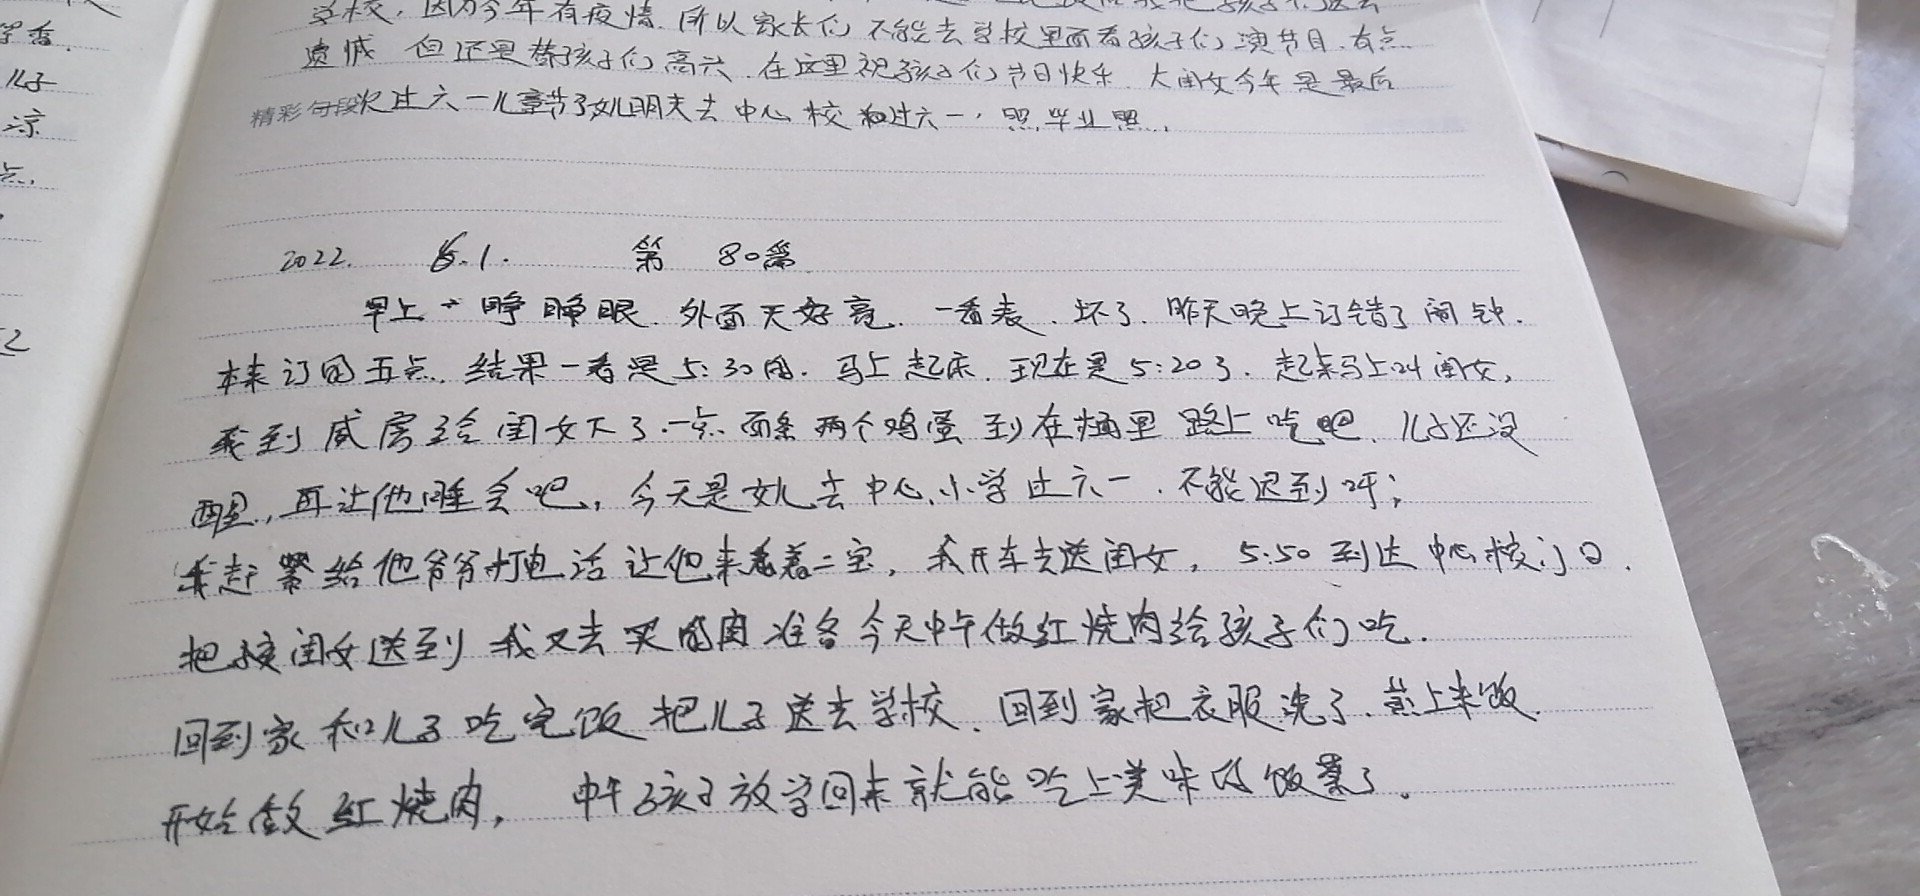 学校，因为今年有疫情.所以家长们不能去学校里面看孩子们演节目.有点
遗憾 但还是替孩子们高兴.在这里祝孩子们节日快乐.大闺女今年是最后
精彩句段
次过六一儿童节了女儿明天去中心校过六一.照毕业照.
2022. 6.1. 第 80篇
早上一睁睁眼.外面天好亮.一看表.坏了.昨天晚上订错了闹钟.
本来订的五点.结果一看是5:30的.马上起床.现在是5:20了.起来马上叫闺女,
我到厨房给闺女下了一点面条两个鸡蛋到在桶里路上吃吧.儿子还没
醒.,再让他睡会吧,今天是女儿去中心小学过六一.不能迟到呀;
我赶紧给他爷爷打电话让他来看着二宝,我开车去送闺女,5:50到达中心校门口.
把闺女送到我又去买肉准备今天中午做红烧肉给孩子们吃.
回到家和儿子吃完饭把儿子送去学校.回到家把衣服洗了.蒸上米饭.
开始做红烧肉,中午孩子放学回来就能吃上美味的饭菜了。
儿子
凉
点.